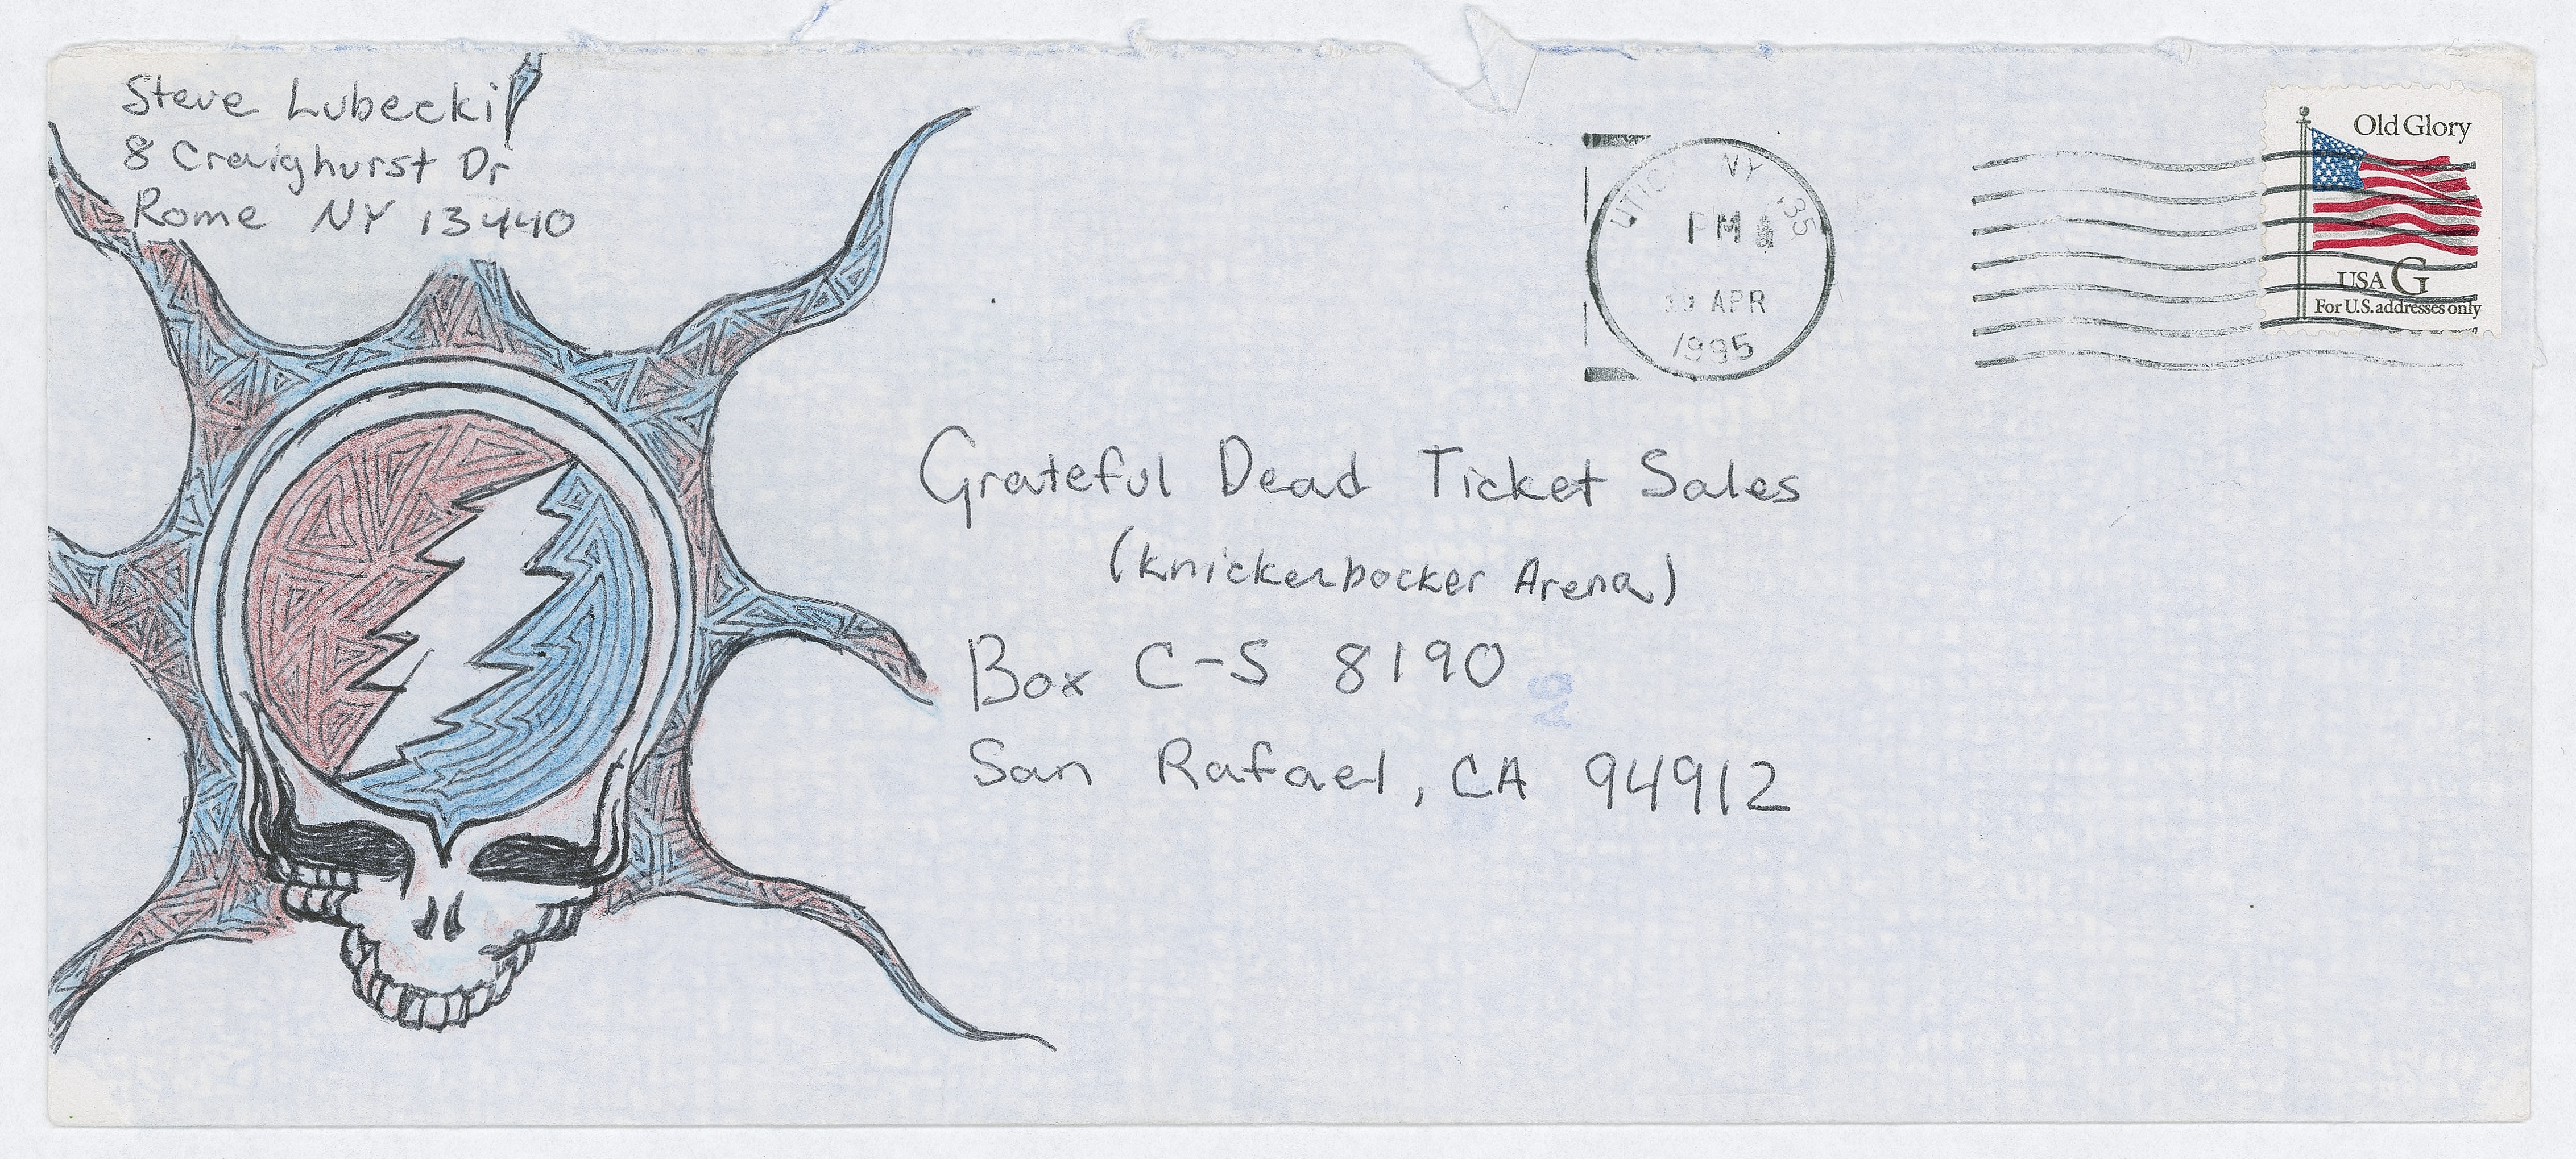 Steve Lubecki
8 Craighurst Dr
Rome NY 13440
UTICA NY 135
PM
APR
1995
Old Glory
USA G
For U.S. addresses only
Grateful Dead Ticket Sales
(Knickerbocker Arena)
Box C-S 8190
San Rafael, CA 94912